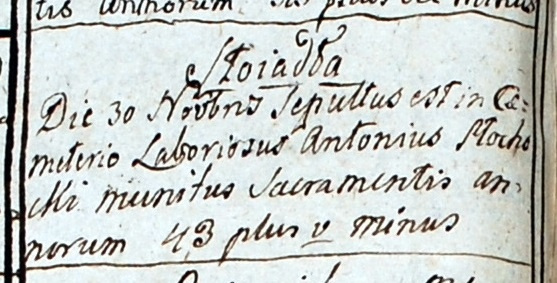 tis annorum
Stoiadła
Die 30 Novbris Sepultus est in Cæ-
meterio Laboriosus Antonius Płocho
cki munitus Sacramentis an-
norum 43 plus v minus